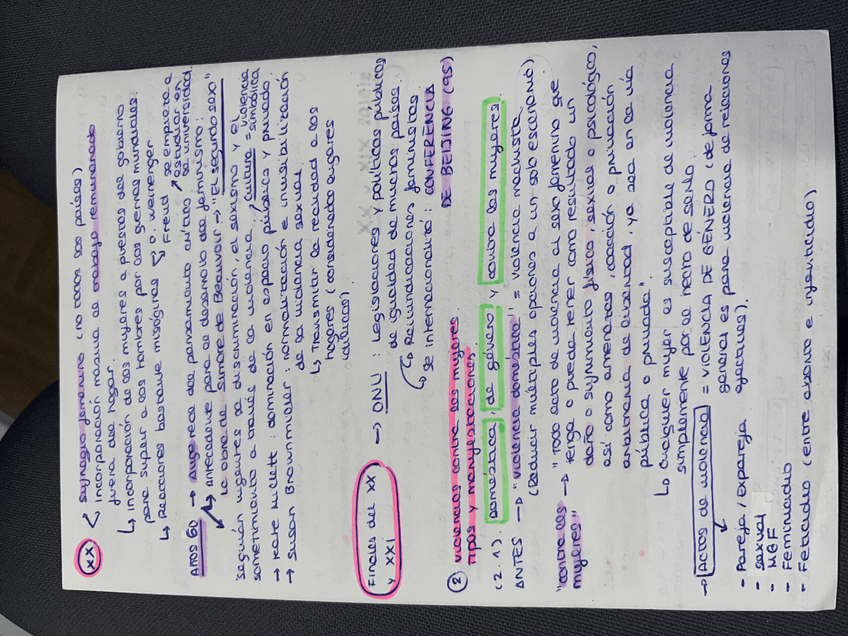 XX < Sufragio femenino (no todos los países)
↳ incorporación masiva al trabajo remunerado
fuera del hogar.
↳ incorporación de las mujeres a puestos del gobierno
para suplir a los hombres por las guerras mundiales.
↳ Reacciones bastante misóginas → O. Weininger
Freud
Se empieza a
estudiar en
la universidad.
Años 60 → Auge real del pensamiento crítico
↳ Antecedente para el desarrollo del feminismo:
la obra de Simone de Beauvoir → "El segundo sexo"
Seguían vigentes la discriminación, el sexismo y el
sometimiento a través de la violencia, cultura = violencia
simbólica
→ Kate Millett: dominación en espacio público y privado.
→ Susan Brownmiller: normalización e invisibilización
de la violencia sexual.
↳ Transmitir la realidad a los
hogares (considerados lugares
idílicos)
Finales del XX
y XXI
→ ONU: Legislaciones y políticas públicas
de igualdad de muchos países.
Reivindicaciones feministas
se internacionalizó: CONFERENCIA
DE BEIJING (95)
② Violencias contra las mujeres.
Tipos y manifestaciones
(2.1). Doméstica, de género y contra las mujeres.
ANTES → "violencia doméstica" = violencia machista
(Reducir múltiples opciones a un solo escenario)
"contra las
mujeres" → "Todo acto de violencia al sexo femenino que
tenga o pueda tener como resultado un
daño o sufrimiento físico, sexual o psicológico,
así como amenazas, coacción o privación
arbitraria de libertad, ya sea en la vía
pública o privada".
↳ Cualquier mujer es susceptible de violencia
simplemente por el hecho de serlo.
→ Actos de violencia = VIOLENCIA DE GÉNERO (de forma
general es para violencia de relaciones
afectivas).
- Pareja / Expareja
- Sexual
- MGF
- Feminicidio
- Feticidio (entre aborto e infanticidio)